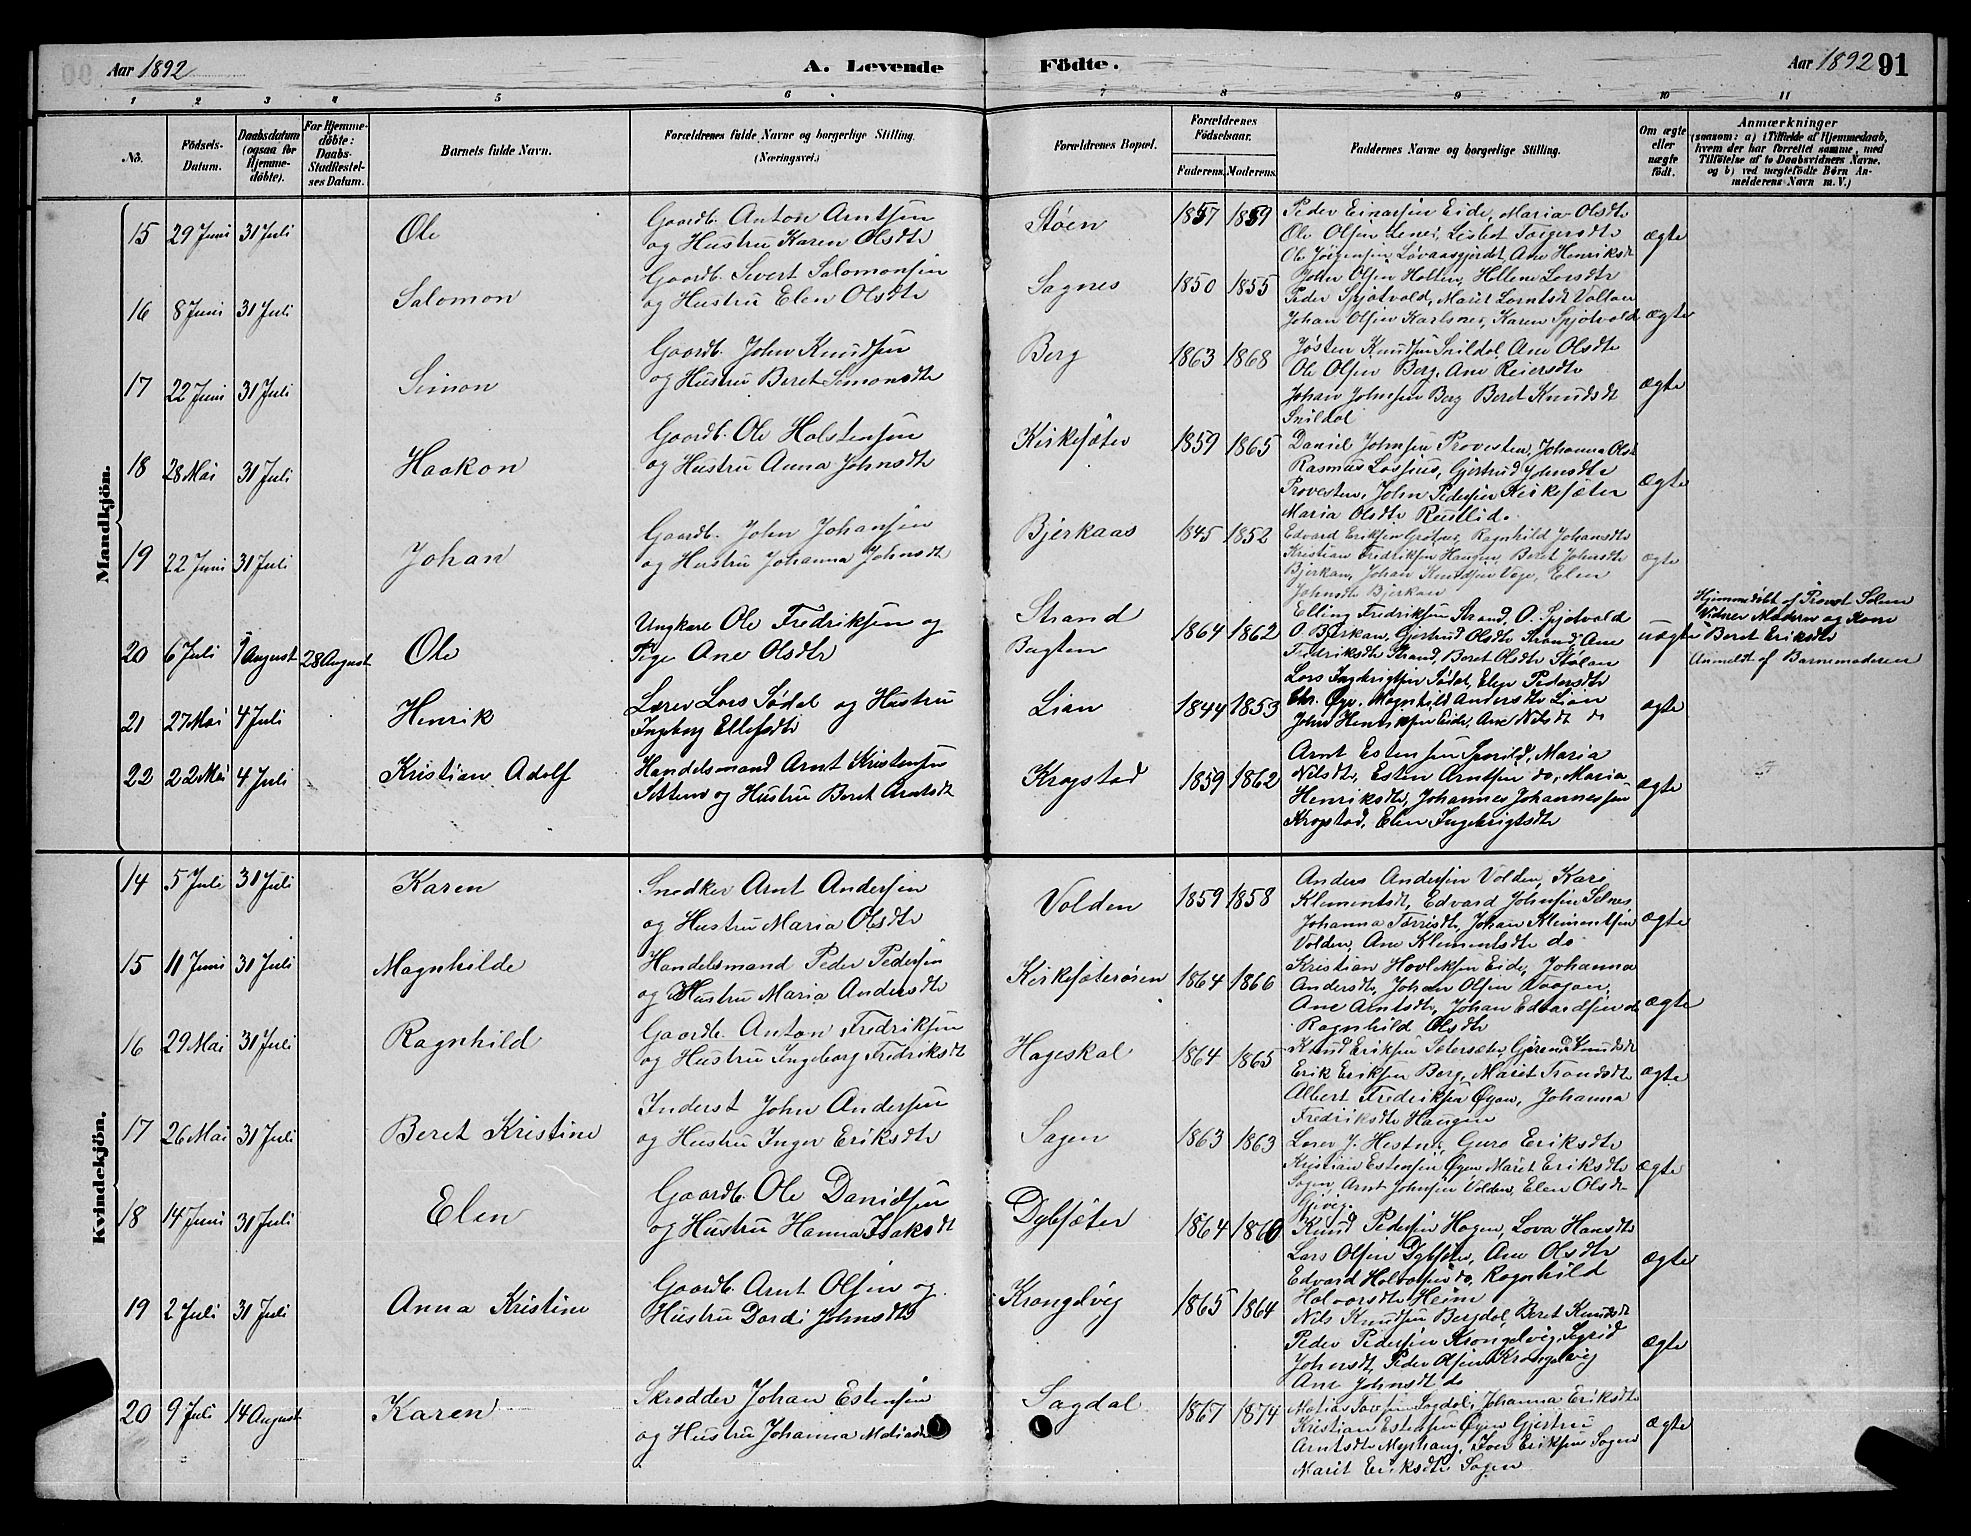 Aar 1892
A. Levende
Fødte.
Aar 1892
91
1 2 3 4 5 6 7 8 9 10 11
No.
Fødsels-
Datum.
Daabsdatum
(ogsaa for
Hjemme-
døbte).
For Hjemme-
døbte:
Daabs-
Stadfæstel-
ses Datum.
Barnets fulde Navn.
Forældrenes fulde Navne og borgerlige Stilling.
(Næringsvei.)
Forældrenes Bopæl.
Forældrenes
Fødselsaar.
Faderens.
Moderens.
Faddernes Navne og borgerlige Stilling.
Om ægte
eller
uægte
født.
Anmærkninger
(saasom: a) i Tilfælde af Hjemmedaab,
hvem der har forrettet samme, med
Tilføielse af to Daabsvidners Navne,
og b) ved uægtefødte Børn An-
melderens Navn m. V.)
Mandkjön.
15 29 Juni 31 Juli
Ole
Gaardb. Anton Arntsen
og Hustru Karen Olsdtr
Støen
1857 1859
Peder Einarsen Eide, Maria Olsdtr
Ole Olsen Lenes, Lisbet Torgersdtr
Ole Jørgensen Løvaasgjerdet, Ane Henriksdt
ægte
16 8 Juni 31 Juli
Salomon
Gaardb. Sivert Salomonsen
og Hustru Elen Olsdtr
Sagnes
1850 1855
John Olsen Holten, Hellene Larsdtr
Peder Spjøtvold, Maret Larntsdt Volian
Johan Olsen Karlsnes, Karen Spjøtvold
ægte
17 22 Juni 31 Juli
Simon
Gaardb. John Knudsen
og Hustru Beret Simonsdtr
Berg
1863 1868
Jøsten Knudsen Snildal, Ane Olsdtr
Ole Olsen Berg, Ane Reiersdtr
Johan Johnsen Berg Beret Knudsdt
Snildal
ægte
18 28 Mai 31 Juli
Haakon
Gaardb. Ole Holstensen
og Hustru Anna Johnsdtr
Kirkesæter
1859 1865
Daniel Johnsen Provesten, Johanna Olsd
Rasmus Lossius, Gjertrud Johnsdtr
Provesten, John Pedersen Kirkesæter
Maria Olsdtr Rustlid.
ægte
19 22 Juni 31 Juli
Johan
Gaardb. John Johansen
og Hustru Johanna Johnsdt
Bjerkaas
1845 1852
Edvard Eriksen Grotnes, Ragnhild Johansdtr
Kristian Fredriksen Haugen, Beret Johnsdtr
Bjerkan, Johan Knudsen Vage, Elen
Johnsdtr Bjerkan
ægte
20 6 Juli 7 August 28 August
Ole
Ungkarl Ole Fredriksen og
Pige Ane Olsdtr
Strand
Bagten
1864 1862
Elling Fredriksen Strand, O. Spjøtvold
O. Bjerkan, Gjertrud Olsdtr Strand, Ane
Fredriksdtr Strand, Beret Olsdtr Stølan
uægte
Hjemmedøbt af Provst Solem
Vidner Moderen og Kone
Beret Eriksdtr
Anmeldt af Barnemoderen
21 27 Mai 4 Juli
Henrik
Lærer Lars Sødal og Hustru
Ingeborg Ellefsdtr
Lian
1844 1853
Lars Ingebrigtsen Sødal, Elen Pedersdtr
Chr. Øye, Magnhild Andersdtr Lian
John Henriksen Eide, Ane Nilsdt do
ægte
22 22 Mai 4 Juli
Kristian Adolf
Handelsmand Arnt Kristensen
Settem og Hustru Beret Arntsdt
Krogstad
1859 1862
Arnt Estensen Svorild, Maria
Nilsdtr, Esten Arntsen do, Maria
Henriksdtr, Johannes Johannessen
Krogstad, Elen Ingebrigtsdtr
ægte
Kvindekjön.
14 5 Juli 31 Juli
Karen
Snedker Arnt Andersen
og Hustru Maria Olsdtr
Volden
1859 1858
Anders Andersen Volden, Kari
Klementsdt, Edvard Johnsen Selnes
Johanna Torrisdt, Johan Klementsen
Volden, Ane Klementsdtr do
ægte
15 11 Juni 31 Juli
Magnhilde
Handelsmand Peder Pedersen
og Hustru Maria Andersdtr
Kirkesæterøren
1864 1866
Kristian Hovleksen Eide, Johanna
Andersdt, Johan Olsen Vaagan,
Ane Arntsdtr, Johan Edvardsen do
Ragnhild Olsdtr
ægte
16 29 Mai 31 Juli
Ragnhild
Gaardb. Anton Fredriksen
og Hustru Ingeborg Fredriksdt
Hageskal
1864 1865
Knud Eriksen Sætersæter, Knudsdt
Erik Eriksen Berg, Maret Trondsdtr
Albert Fredriksen Øyen, Johanna
Fredriksdtr Haugen
ægte
17 26 Mai 31 Juli
Beret Kristine
Inderst John Andersen
og Hustru Inger Eriksdtr
Sagen
1863 1863
Lærer J. Hestnes, Guro Eriksdtr
Kristian Estensen Øyen, Maret Eriksdtr
Sagen, Arnt Johnsen Volden, Elen Olsdt
Gjøvig
ægte
18 14 Juni 31 Juli
Elen
Gaardb. Ole Danidsen
og Hustru Hanna Isaksdt
Dybsæter
1864 1860
Knud Pedersen Hagen, Lova Hansdtr
Lars Olsen Dybsæter, Ane Olsdtr
Edvard Holvorsen do, Ragnhild
Holvorsdtr Heim
ægte
19 2 Juli 31 Juli
Anna Kristine
Gaardb. Arnt Olsen og
Hustru Dordi Johnsdtr
Krangelvig
1865 1864
Nils Knudsen Bergdal, Beret Knudsdt
Peder Pedersen Krongelvig, Sigrid
Johnsdt, Peder Olsen Krongelvig
Ane Johnsdt do
ægte
20 9 Juli 14 August
Karen
Skrædder Johan Estensen
og Hustru Johanna Matiasdtr
Sagdal
1867 1874
Matias Sagdal, Johanna Eriksdtr
Kristian Estensen Øyen Gjertru
Arntsdtr Myrhaug, Eriksen Sagen
Marit Eriksdtr Sagen
ægte